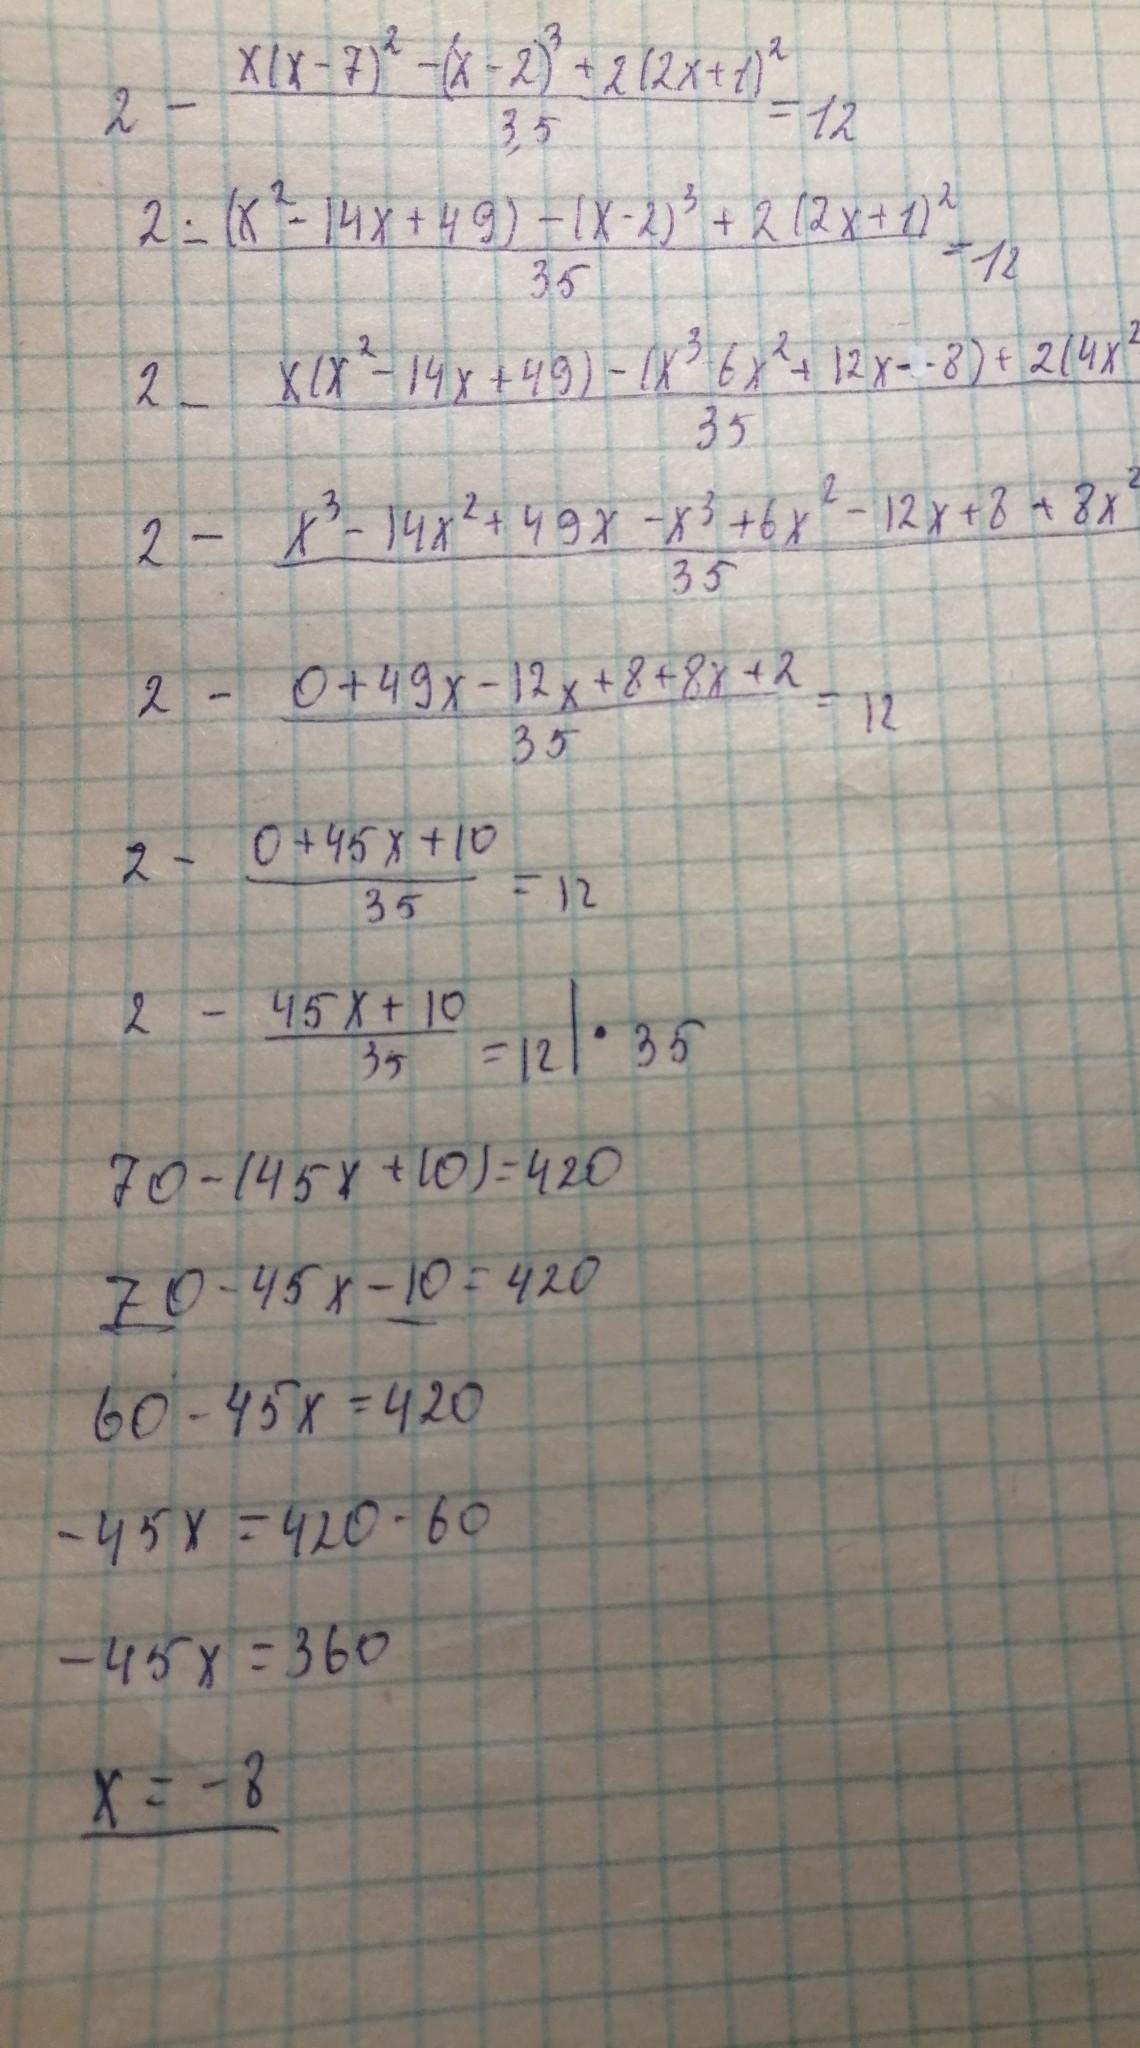 2 - (x(x-7)² - (x-2)³ + 2(2x+1)²)/3,5 = 12
2 - ((x² - 14x + 49) - (x-2)³ + 2(2x+1)²)/35 = 12
2 - (x(x² - 14x + 49) - (x³ 6x² + 12x - -8) + 2(4x²)/35
2 - (x³ - 14x² + 49x - x³ + 6x² - 12x + 8 + 8x²)/35
2 - (0 + 49x - 12x + 8 + 8x + 2)/35 = 12
2 - (0 + 45x + 10)/35 = 12
2 - (45x + 10)/35 = 12 | · 35
70 - (45x + 10) = 420
70 - 45x - 10 = 420
60 - 45x = 420
-45x = 420 - 60
-45x = 360
x = -8